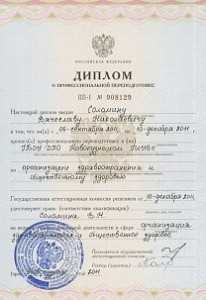 РОССИЙСКАЯ ФЕДЕРАЦИЯ
ДИПЛОМ
О ПРОФЕССИОНАЛЬНОЙ ПЕРЕПОДГОТОВКЕ
ПП-I № 008129
Настоящий диплом выдан Соломину
Вячеславу Николаевичу
в том, что он(а) с 06 сентября 2011 по 10 декабря 2011
прошел(а) профессиональную переподготовку в (на)
ГБОУ ДПО Новокузнецкий ГИУВ
по
организации здравоохранения и
общественному здоровью
Государственная аттестационная комиссия решением от 10 декабря 2011
удостоверяет право (соответствие квалификации)
Соломина В.Н.
на ведение профессиональной деятельности в сфере организации
здравоохранения и общественное здоровье
Председатель государственной
аттестационной комиссии
Ректор
2011